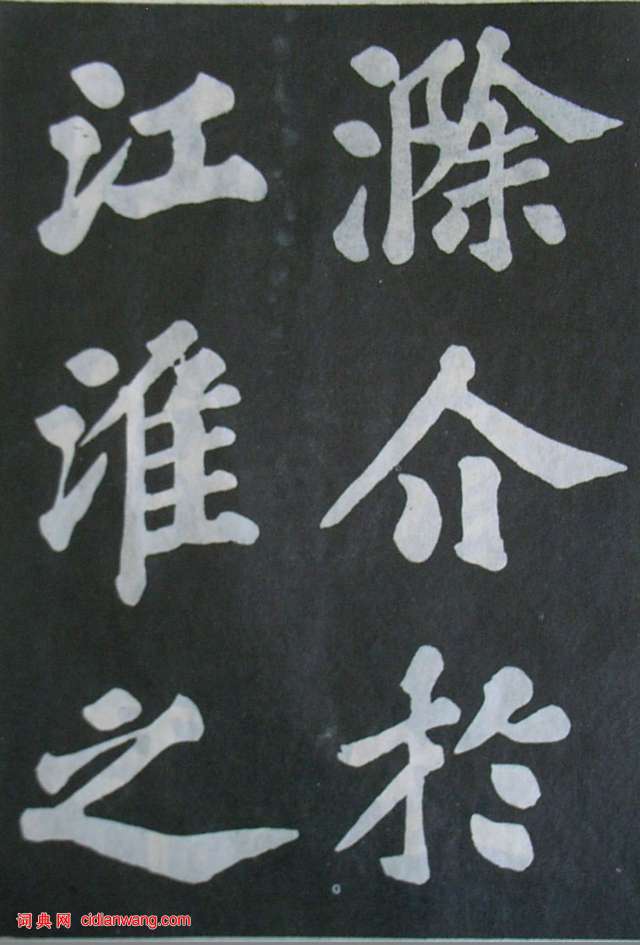 滁介於
江淮之
词典网 cidianwang.com